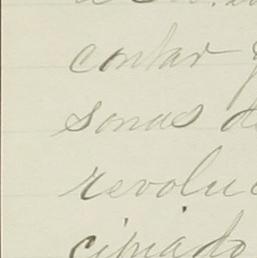 contar
sonas de
revolu
cipiado